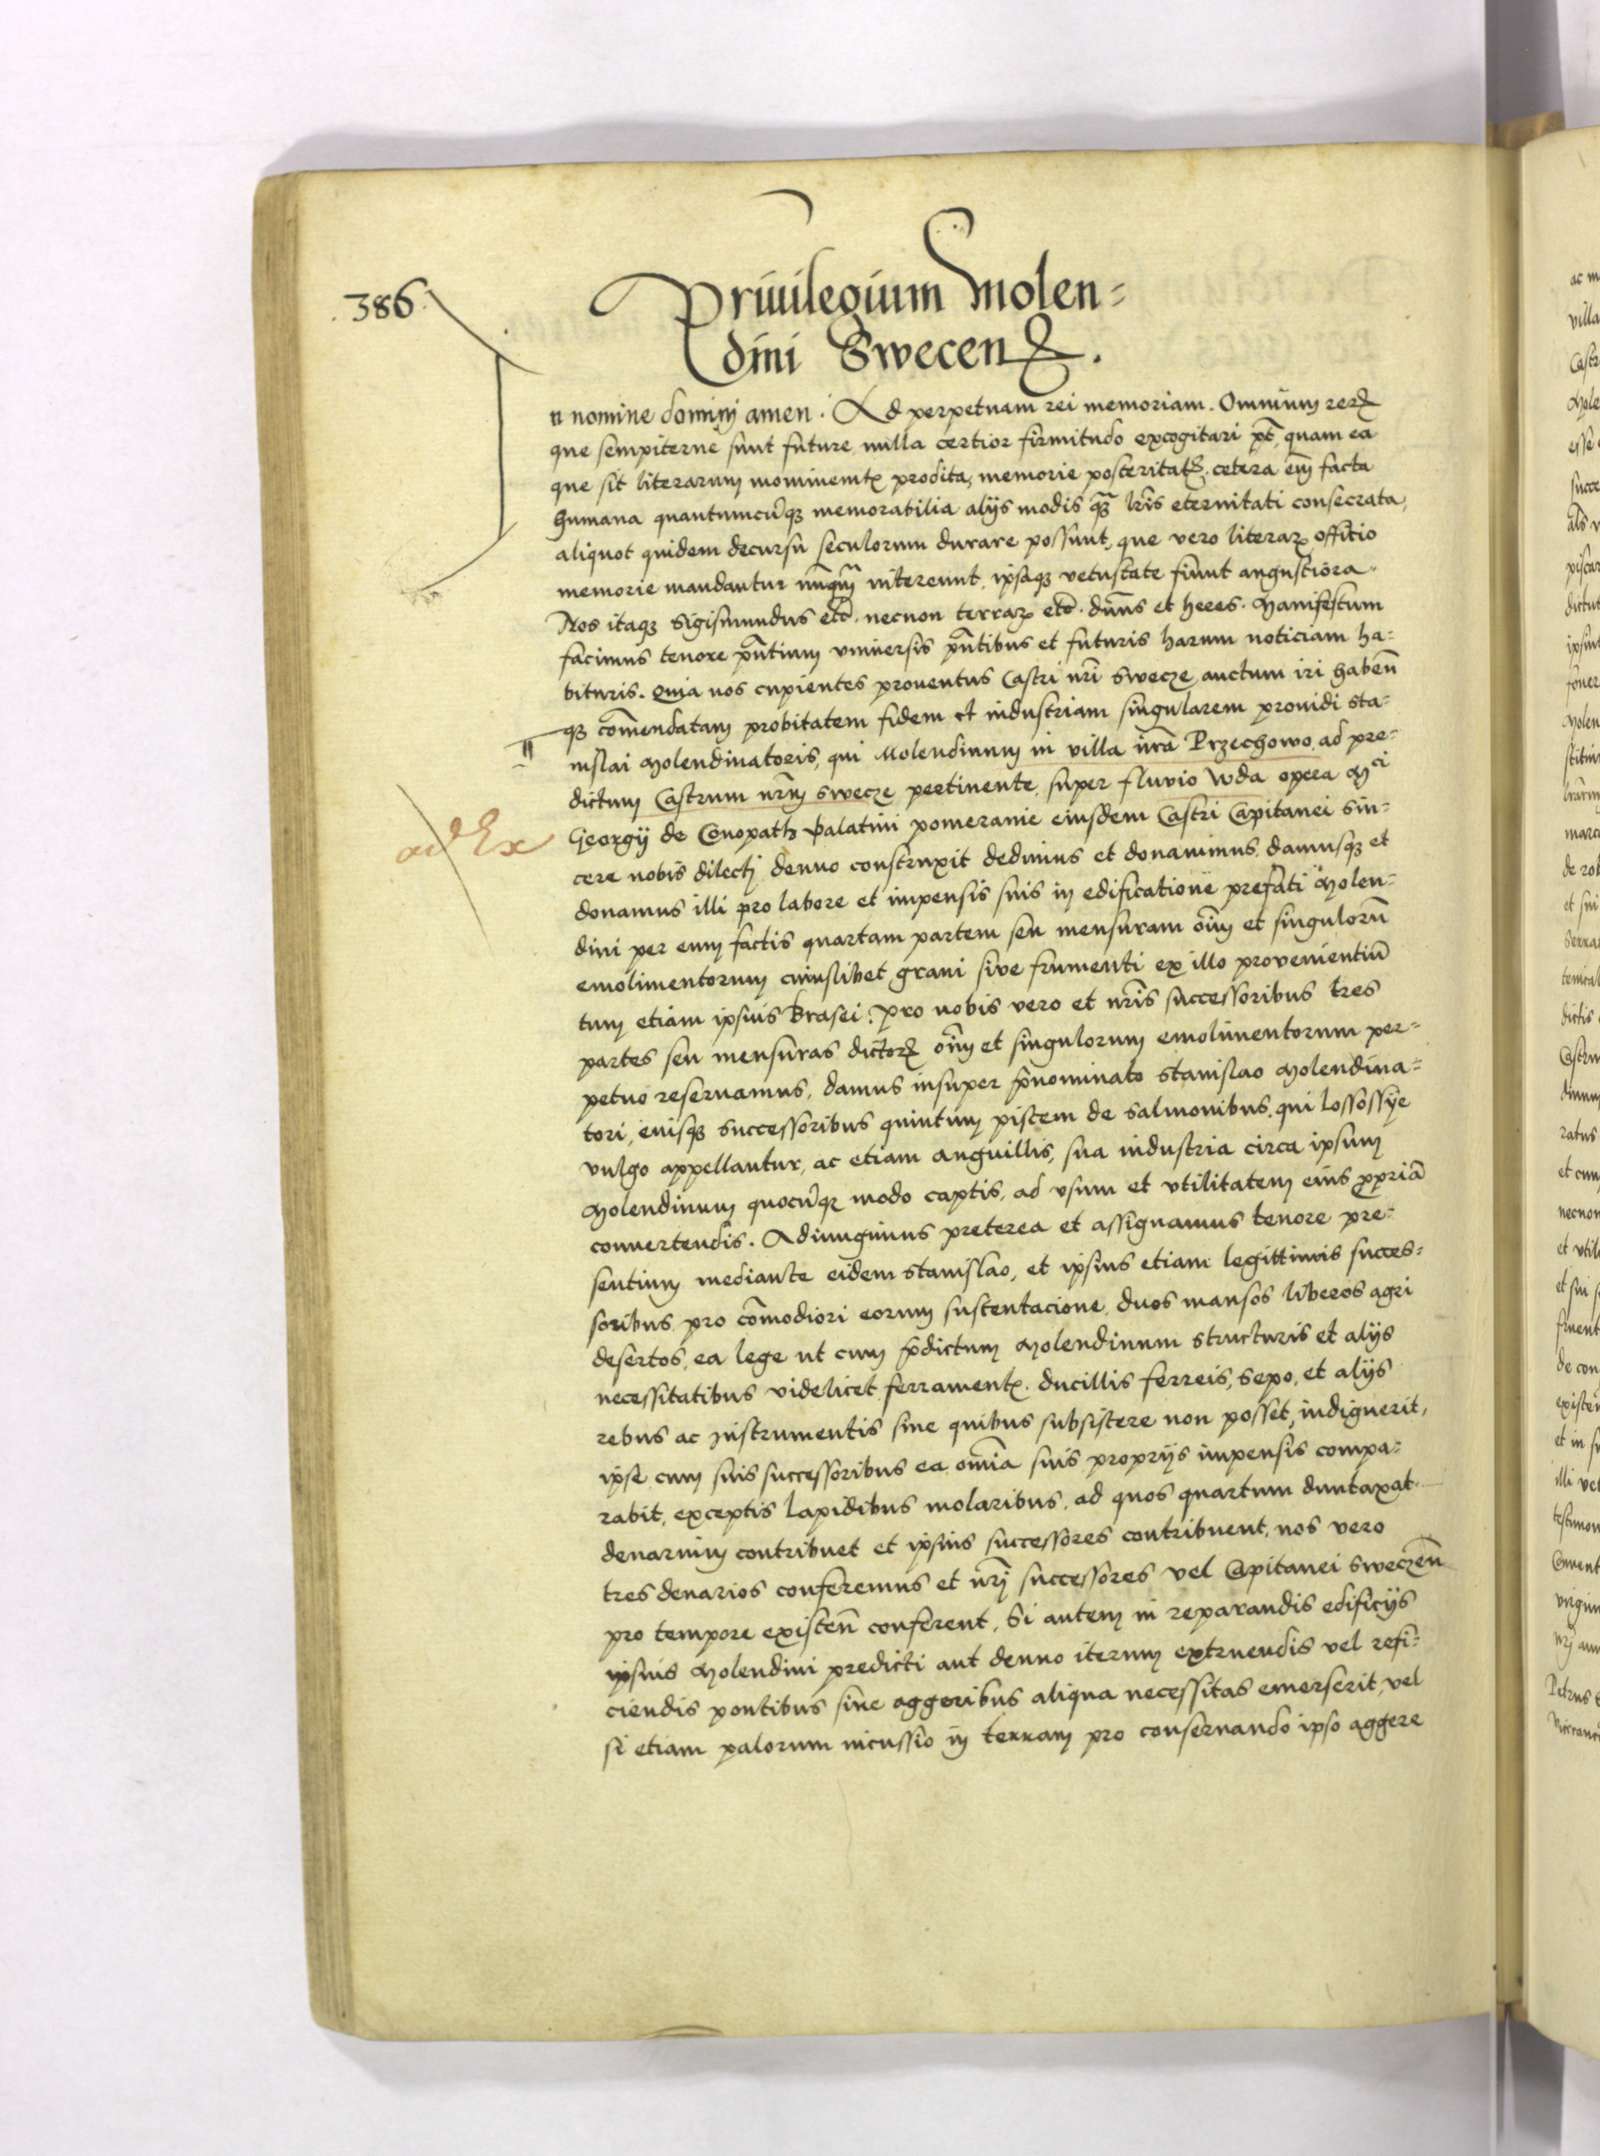 386
Priuilegium Molen=
dini Swecen̄.
n nomine dominj amen. Ad perpetuam rei memoriam. Omnium rerꝝ
que sempiterne sunt future, nulla certior firmitudo excogitari pt̄, quam ea
que sit literarum prodita, memorie posteritatꝭ. cetera em̄ facta
humana quantumcūqꝫ memorabilia alijs modis qꝫ lr̄is eternitati consecrata,
aliquot quidem decursu seculorum durare possunt, que vero literarꝝ offitio
memorie mandantur nūqm̄ intereunt, ipsaqꝫ vetustate fiunt angustiora.
Nos itaqꝫ Sigismundus etc̄. necnon terrarꝝ etc̄. dn̄us et heres. Manifestum
facimus tenore pn̄tium vniuersis pn̄tibus et futuris harum noticiam ha=
bituris. Quia nos cupientes prouentus Castri nr̄i Swecze auctum iri haben̄
qꝫ com̄endatam probitatem fidem et industriam singularem prouidi Sta=
nislai Molendinatoris, qui Molendinum in villa nr̄a Przechowo, ad pre=
dictum Castrum nr̄m Swecze pertinente, super fluvio Wda opera Mci
Georgij de Conopath Palatini pomeranie eiusdem Castri Capitanei sin=
cere nobis dilectj denuo construxit dedimus et donauimus, damusqꝫ et
donamus illi pro labore et impensis suis in edificatione prefati Molen=
dini per eum factis quartam partem seu mensuram om̄ et singulorū
emolimentorum cuiuslibet grani sive frumenti ex illo provenientiū
tum etiam ipsius brasei. Pro nobis vero et nr̄is successoribus tres
partes seu mensuras dictorꝝ om̄ et singulorum emolimentorum per=
petuo reseruamus, damus insuper p̄nominato Stanislao Molendina=
tori, euisqꝫ successoribus quintum piscem de salmonibus, qui Lossossije
vulgo appellantur, ac etiam anguillis, sua industria circa ipsum
Molendinum quocūqꝫ modo captis, ad vsum et vtilitatem eius ꝓpriā
conuertendis. Adiungimus preterea et assignamus tenore pre=
sentium mediante eidem Stanislao, et ipsius etiam legittimis succes=
soribus, pro com̄odiori eorum sustentacione, duos mansos liberos agri
desertos, ea lege ut cum p̄dictum Molendinum structuris et alijs
necessitatibus videlicet ferramentꝭ. ducillis ferreis, sepo, et alijs
rebus ac Instrumentis sine quibus subsistere non posset, indiguerit,
ipse cum suis successoribus ea om̄ia suis proprijs impensis compa=
rabit, exceptis lapidibus molaribus, ad quos quartum duntaxat
denarium contribuet et ipsius successores contribuent, nos vero
tres denarios conferemus et nr̄j successores vel Capitanei Sweczen̄
pro tempore existen̄ conferent, Si autem in reparandis edificijs
ipsius Molendini predicti aut denuo iterum extruendis vel refi=
ciendis pontibus sine aggeribus aliqua necessitas emerserit, vel
si etiam palorum incussio in terram pro conseruando ipso aggere
ad Ex